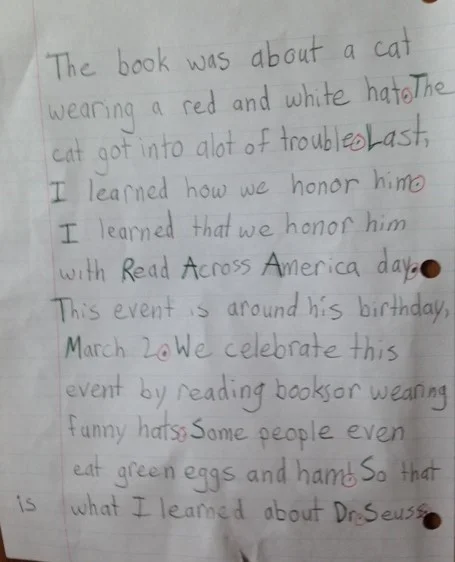 The book was about a cat
wearing a red and white hat. The
cat got into alot of trouble. Last,
I learned how we honor him.
I learned that we honor him
with Read Across America day.
This event is around his birthday,
March 2. We celebrate this
event by reading books or wearing
funny hats. Some people even
eat green eggs and ham! So that
is what I learned about Dr. Seuss.